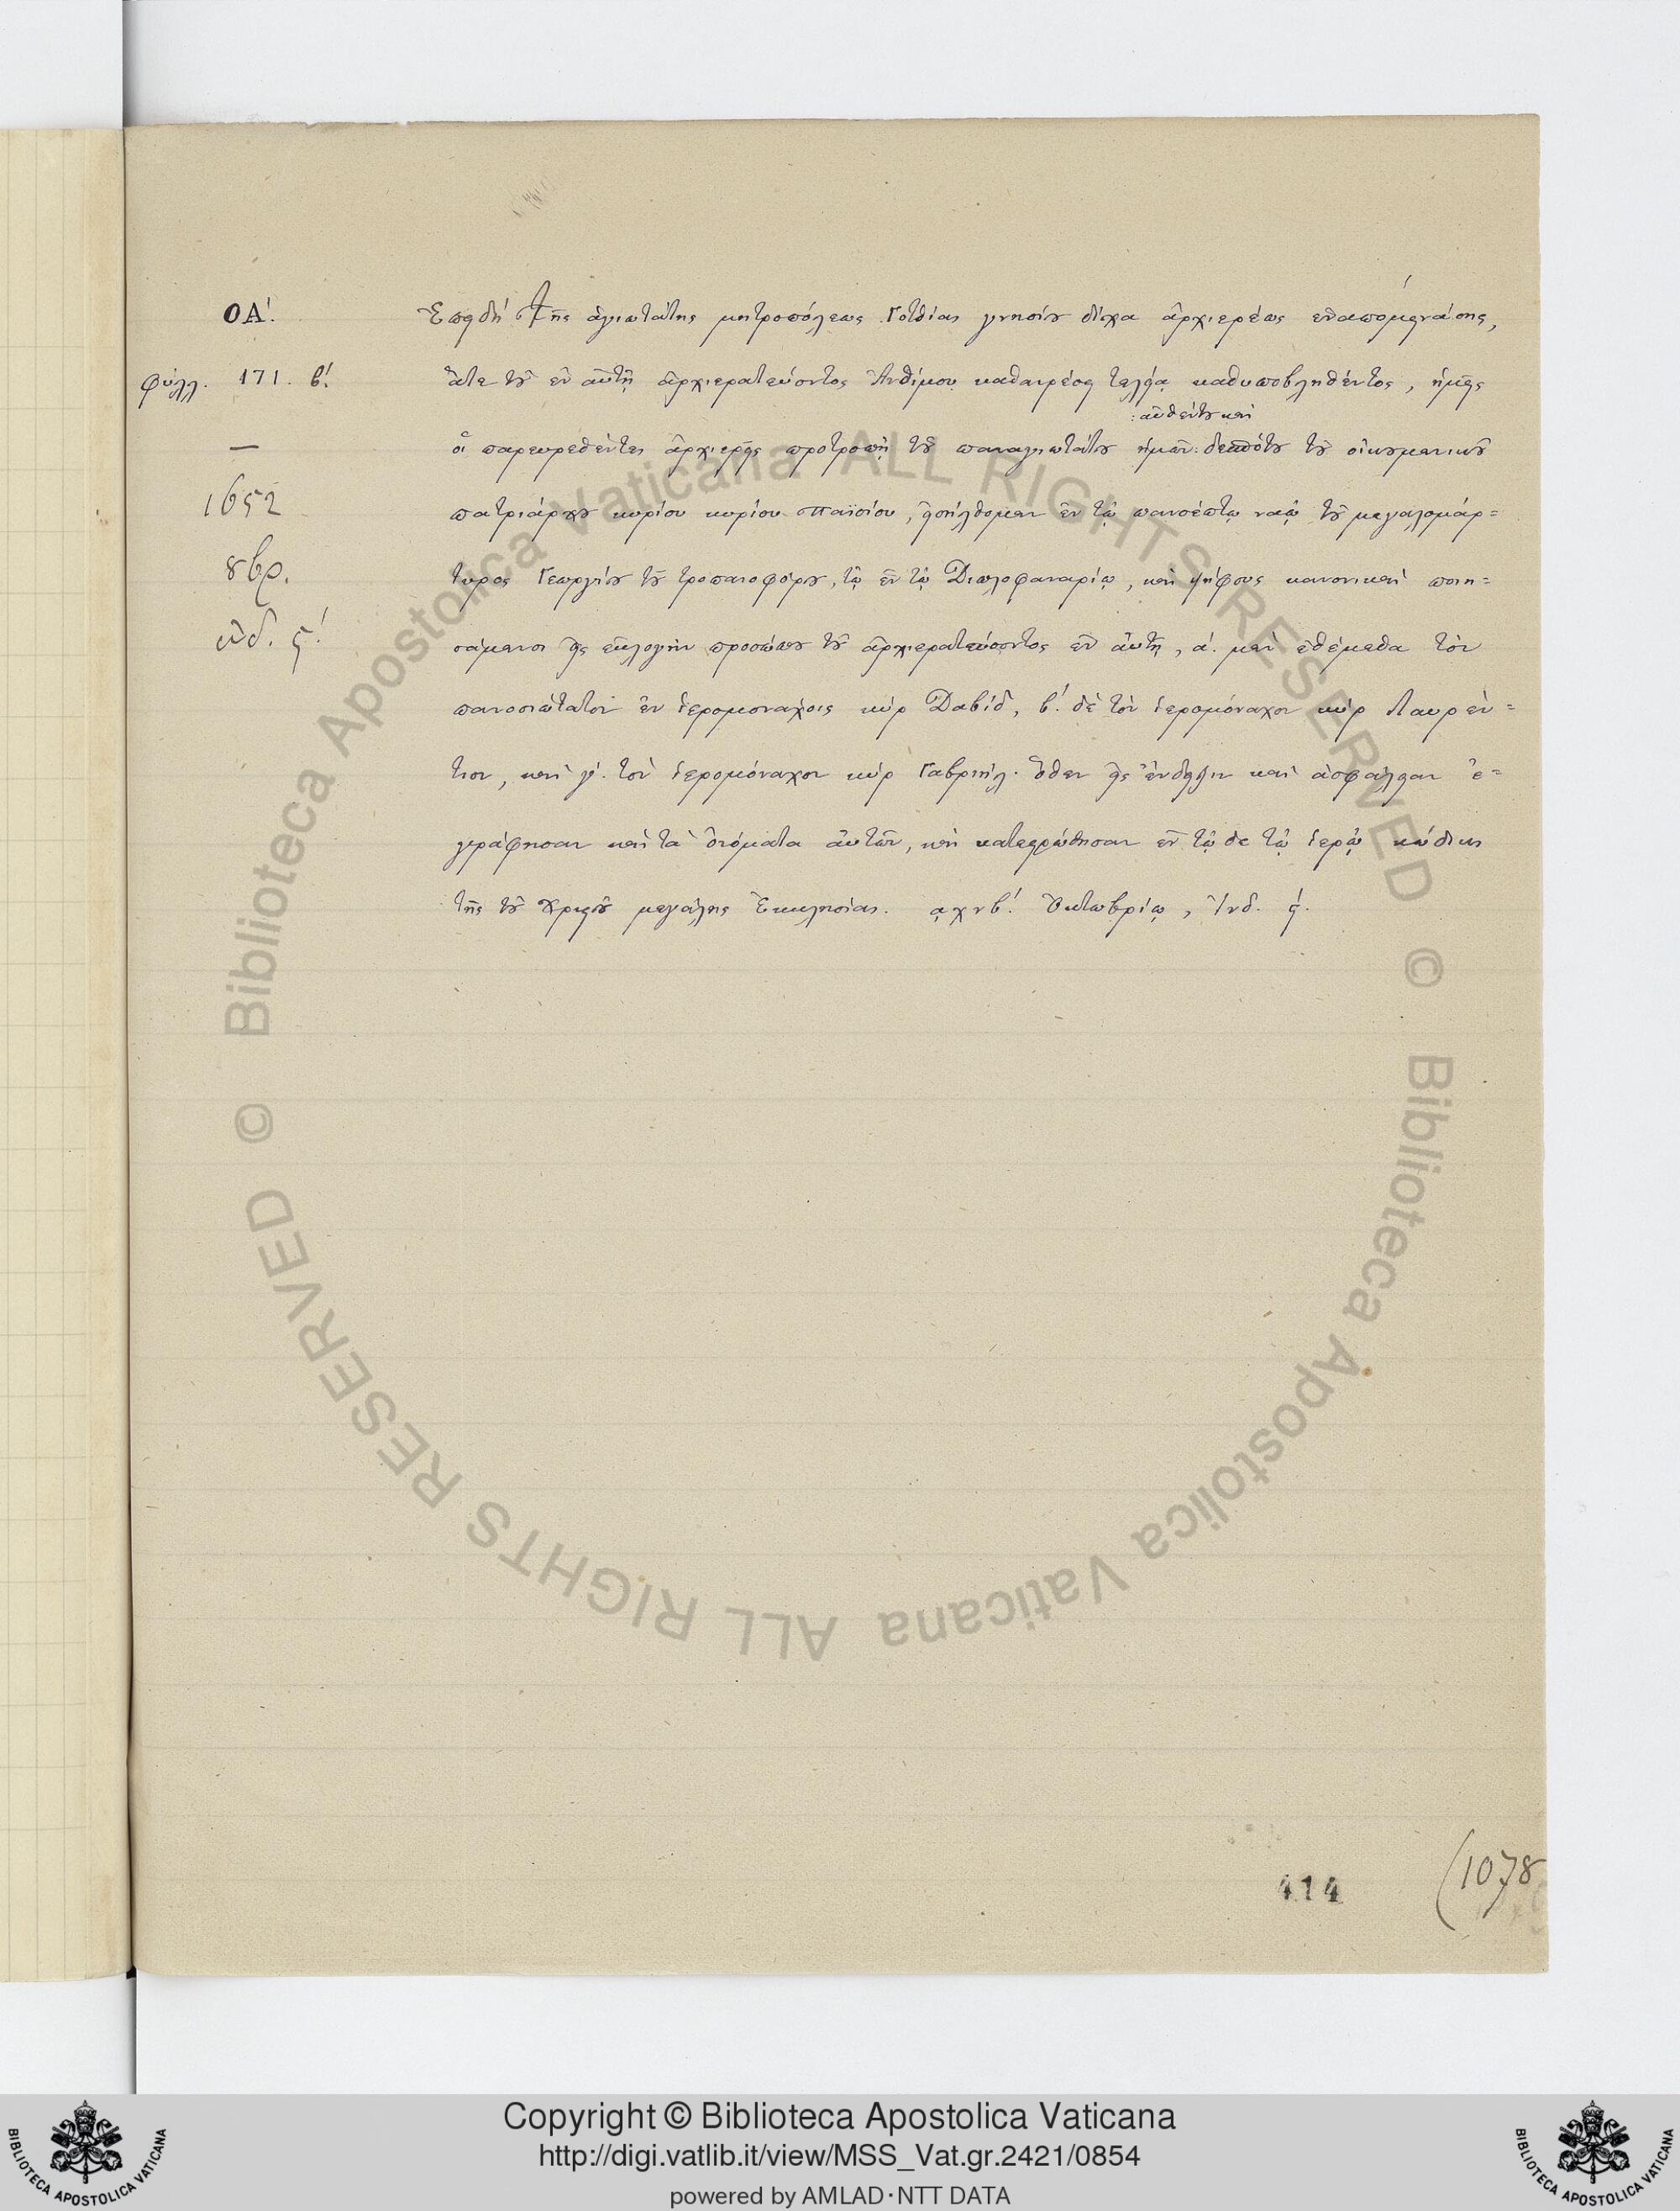 ΟΑ΄.
φύλλ. 171. β΄.
—
1652
8βρ.
ἰνδ. ϛ΄.
Ἐπειδὴ τῆς ἁγιωτάτης μητροπόλεως Γοτθίας γνησίου δίχα ἀρχιερέως ἐναπομεινάσης,
ἅτε τοῦ ἐν αὐτῇ ἀρχιερατεύοντος Ἀνθίμου καθαιρέσει τελείᾳ καθυποβληθέντος, ἡμεῖς
:αὐθέντου καὶ
οἱ παρευρεθέντες ἀρχιερεῖς προτροπῇ τοῦ παναγιωτάτου ἡμῶν: δεσπότου τοῦ οἰκουμενικοῦ
πατριάρχου κυρίου κυρίου Παϊσίου, εἰσήλθομεν ἐν τῷ πανσέπτῳ ναῷ τοῦ μεγαλομάρ=
τυρος Γεωργίου τοῦ τροπαιοφόρου, τῷ ἐν τῷ Διπλοφαναρίῳ, καὶ ψήφους κανονικαὶ ποιη=
σάμενοι εἰς ἐκλογὴν προσώπου τοῦ ἀρχιερατεύσοντος ἐν αὐτῇ, α΄. μὲν ἐθέμεθα τὸν
πανοσιώτατον ἐν ἱερομονάχοις κὺρ Δαβίδ, β΄. δὲ τὸν ἱερομόναχον κὺρ Λαυρέν=
τιον, καὶ γ΄. τὸν ἱερομόναχον κὺρ Γαβριήλ. ὅθεν εἰς ἔνδειξιν καὶ ἀσφάλειαν ἐ=
γράφησαν καὶ τὰ ὀνόματα αὐτῶν, καὶ κατεστρώθησαν ἐν τῷ δε τῷ ἱερῷ κώδικι
τῆς τοῦ Χριστοῦ μεγάλης Ἐκκλησίας. ͵αχνβ΄. Ὀκτωβρίῳ, Ἰνδ. ϛ΄.
414
(1078
© Biblioteca Apostolica Vaticana ALL RIGHTS RESERVED © Biblioteca Apostolica Vaticana ALL RIGHTS RESERVED
Copyright © Biblioteca Apostolica Vaticana
http://digi.vatlib.it/view/MSS_Vat.gr.2421/0854
powered by AMLAD·NTT DATA
BIBLIOTECA APOSTOLICA VATICANA
BIBLIOTECA APOSTOLICA VATICANA